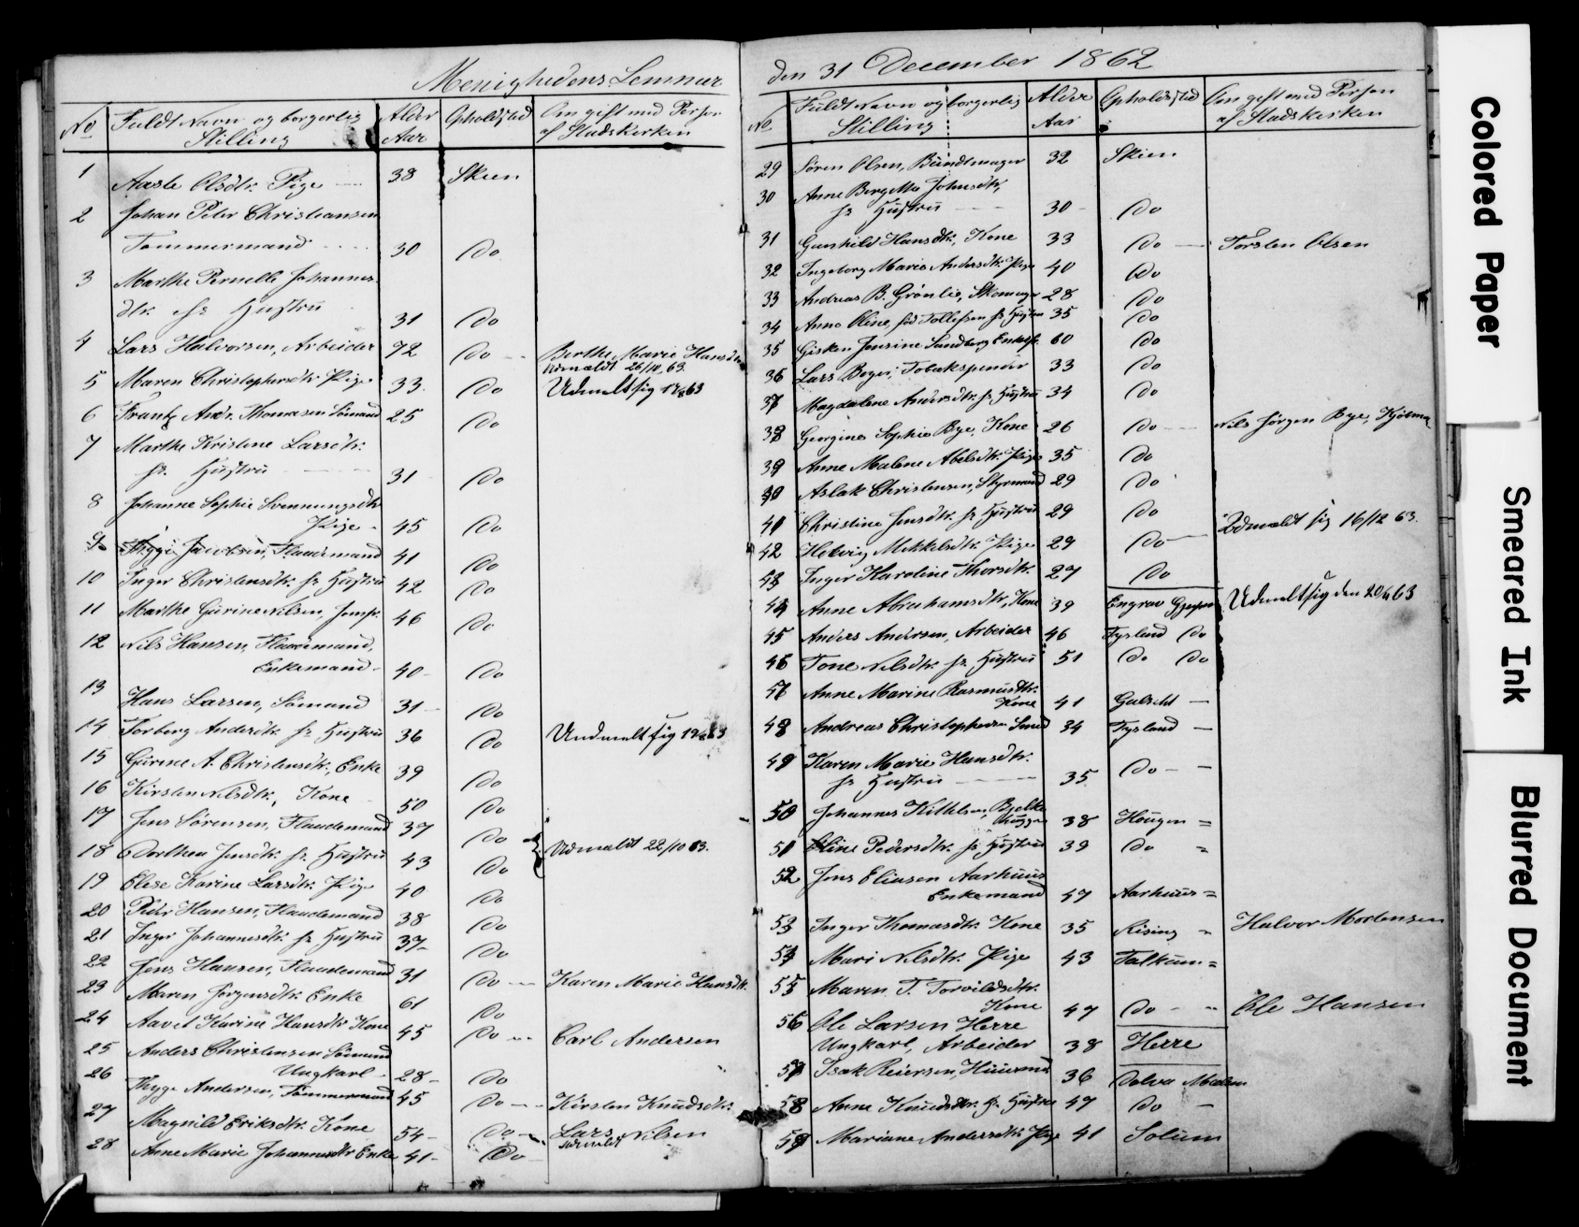 Menighedens Lemmer
No Fuldt Navn og borgerlig Stilling Alder Aar Opholdsted Om gift med Person af Stadskirken
1 Aaste Olsdtr. Pige 38 Skien
2 Johan Peter Christiansen
Tømmermand 30 Do
3 Marthe Pernelle Johannes-
dtr. hs Hustru 31 Do
4 Lars Halvorsen, Arbeider 72 Do Berthe Marie Hansdtr
Udmældt 26/10 63.
5 Maren Christophersdtr. Pige 33. Do Udmelt sig
6 Frantz Andr. Thomasen Sömand 25 Do
7 Marthe Kristine Larsdtr.
hs. Hustru 31 Do
8 Johanne Sophie Svennungsdtr
Pige 45 Do
9 Thyge Jacobsen, Flaademand 41 Do
10 Inger Christensdtr. hs Hustru 42 Do
11 Marthe Gurine Nilsen, Jomfr. 46 Do
12 Nils Hansen, Flaademand,
Enkemand 40 Do
13 Hans Larsen, Sömand 31 Do
14 Torberg Andersdtr. hs Hustru 36 Do Uudmelt sig
15 Gurine A. Christensdtr., Enke 39 Do
16 Kirsten Nilsdtr., Kone 50 Do
17 Jens Sörensen, Flaademand 37 Do
18 Dorthea Jensdtr. hs Hustru 43 Do Udmældt 22/10 63.
19 Elese Karine Larsdtr. Pige 40 Do
20 Peder Hansen, Flaademand 38 Do
21 Inger Johannesdtr. hs Hustru 37 Do
22 Jens Hansen, Flaademand 31 Do Karen Marie Hansdtr.
23 Maren Jörgensdtr. Enke 61 Do
24 Karine Hansdtr Kone 45 Do Carl Andersen
25 Anders Christensen Sömand
Ungkarl 28 Do
26 Thyge Andersen, Tømmermand 45 Do Kirsten Knudsdtr.
27 Magnild Eriksdtr. Kone 54 Do Lars Nilsen
udmeldt
28 Anne Marie Johannesdtr Enke 41 Do
den 31 December 1862
No Fuldt Navn og borgerlig Stilling Alder Aar Opholdsted Om gift med Person af Stadskirken
29 Sören Olsen, Bundtmager 32 Skien
30 Anne Johnsdtr,
hs Hustru 30 Do
31 Gunhild Hansdtr., Kone 33 Do Torsten Olsen
32 Ingeborg Marie Andersdtr. Pige 40 Do
33 Andreas B. Grönlie, Skomager 28 Do
34 Anne Oline, föd Tollefsen hs Hustru 35 Do
35 Gisken Jensine Sundberg Enkefr. 60 Do
36 Lars Boyer, Tobakspinder 33 Do
37 Magdalene Andersdtr. hs Hustru 34 Do
38 Georgine Sophie Bye, Kone 26 Do Nils Jörgen Bye,
39 Anne Malene Abelsdtr. Pige 35 Do
40 Aslak Christensen, Styrmand 29 Do
41 Christine Jensdtr. hs Hustru 29 Do Udmældt sig 16/12 63.
42 Helvig Mikkelsdtr. Pige 29 Do
43 Inger Karoline Thorsdtr. 27 Do
44 Anne Abrahamsdtr., Kone 39 Gjerpen Udmelt sig den
45 Anders Andersen, Arbeider 46 Fysland Do
46 Tone Nilsdtr. hs Hustru 51 Do Do
Anne Marine Rasmusdtr.
Kone 41
48 Andreas Christophersen Smed 34 Fysland
49 Karen Marie Hansdtr.
hs Hustru 35 Do
50 Johannes Kittelsen,
38 Hougen
51 Oline Pedersdtr. hs Hustru 39 Do
52 Jens Eliasen Aarhuus
Enkemand 47 Aarhuus
53 Inger Thomasdtr. Kone 35 Rising Halvor Mortensen
54 Mari Nilsdtr. Pige 43 Falkum
55 Maren T. Torvildsdtr.
Kone 47 Do Ole Hansen
56 Ole Larsen Herre
Ungkarl, Arbeider 38 Herre
57 Isak Reiersen, Huusmand 36
58 Anne Knudsdtr. hs Hustru 47 Do
59 Mariane Andersdtr. Pige 41 Solum
Colored Paper
Smeared Ink
Blurred Document